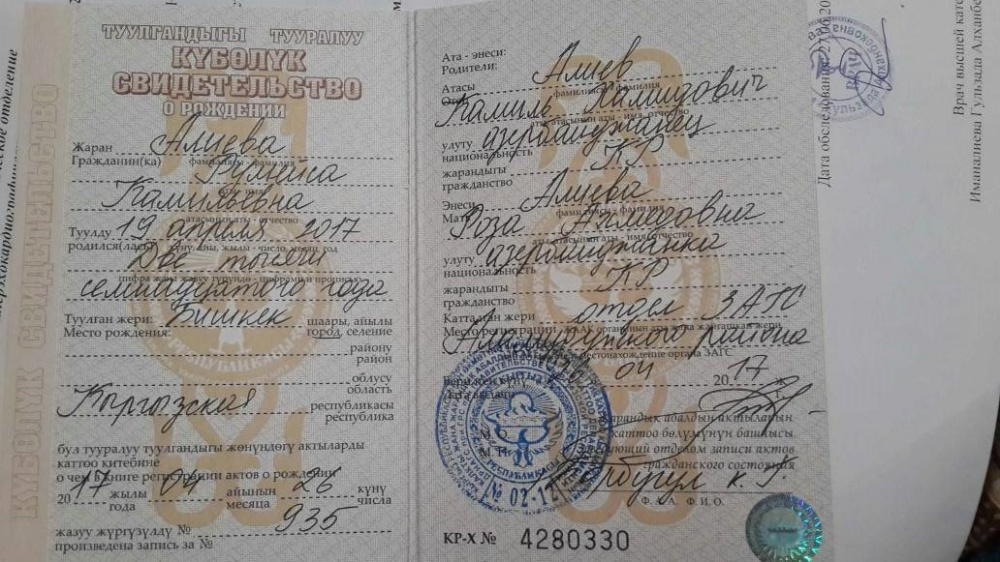 ТУУЛГАНДЫГЫ ТУУРАЛУУ
КҮБӨЛҮК
СВИДЕТЕЛЬСТВО
О РОЖДЕНИИ
Жаран
Гражданин(ка)
Алиева
фамилиясы - фамилия
Румейса
Камильевна
атасынын аты - отчество
Туулду
родился(лась)
19 апреля 2017
Две тысячи
семнадцатого года
Туулган жери:
Место рождения:
Бишкек
шаары, айылы
город, селение
району
район
облусу
область
Кыргызская
республикасы
республика
бул тууралуу туулгандыгы жөнүндөгү актыларды
каттоо китебине
о чем в книге регистрации актов о рождении
2017 жылы 04 айынын 26 күнү
года месяца числа
жазуу жүргүзүлдү №
произведена запись за №
935
Ата - энеси:
Родители:
Атасы
Отец
Алиев
фамилиясы - фамилия
Камиль Хамидович
аты, атасынын аты - имя, отчество
улуту
национальность
азербайджанец
жарандыгы
гражданство
КР
Энеси
Мать
Алиева
фамилиясы - фамилия
Роза
аты, атасынын аты - имя, отчество
улуту
национальность
азербайджанка
жарандыгы
гражданство
КР
Катталган жери
Место регистрации
отдел ЗАГС
района
местонахождение органа ЗАГС
04 2017 ж.
М.П.
жарандык абалдын актыларын
каттоо бөлүмүнүн башчысы
Заведующий отделом записи актов
гражданского состояния
к. У.
Ф.А.А. Ф.И.О.
№ 02-12
КР-Х № 4280330
КҮБӨЛҮК СВИДЕТЕЛЬСТВО
Дата обследования
Врач высшей
Иманалиева Гульзада